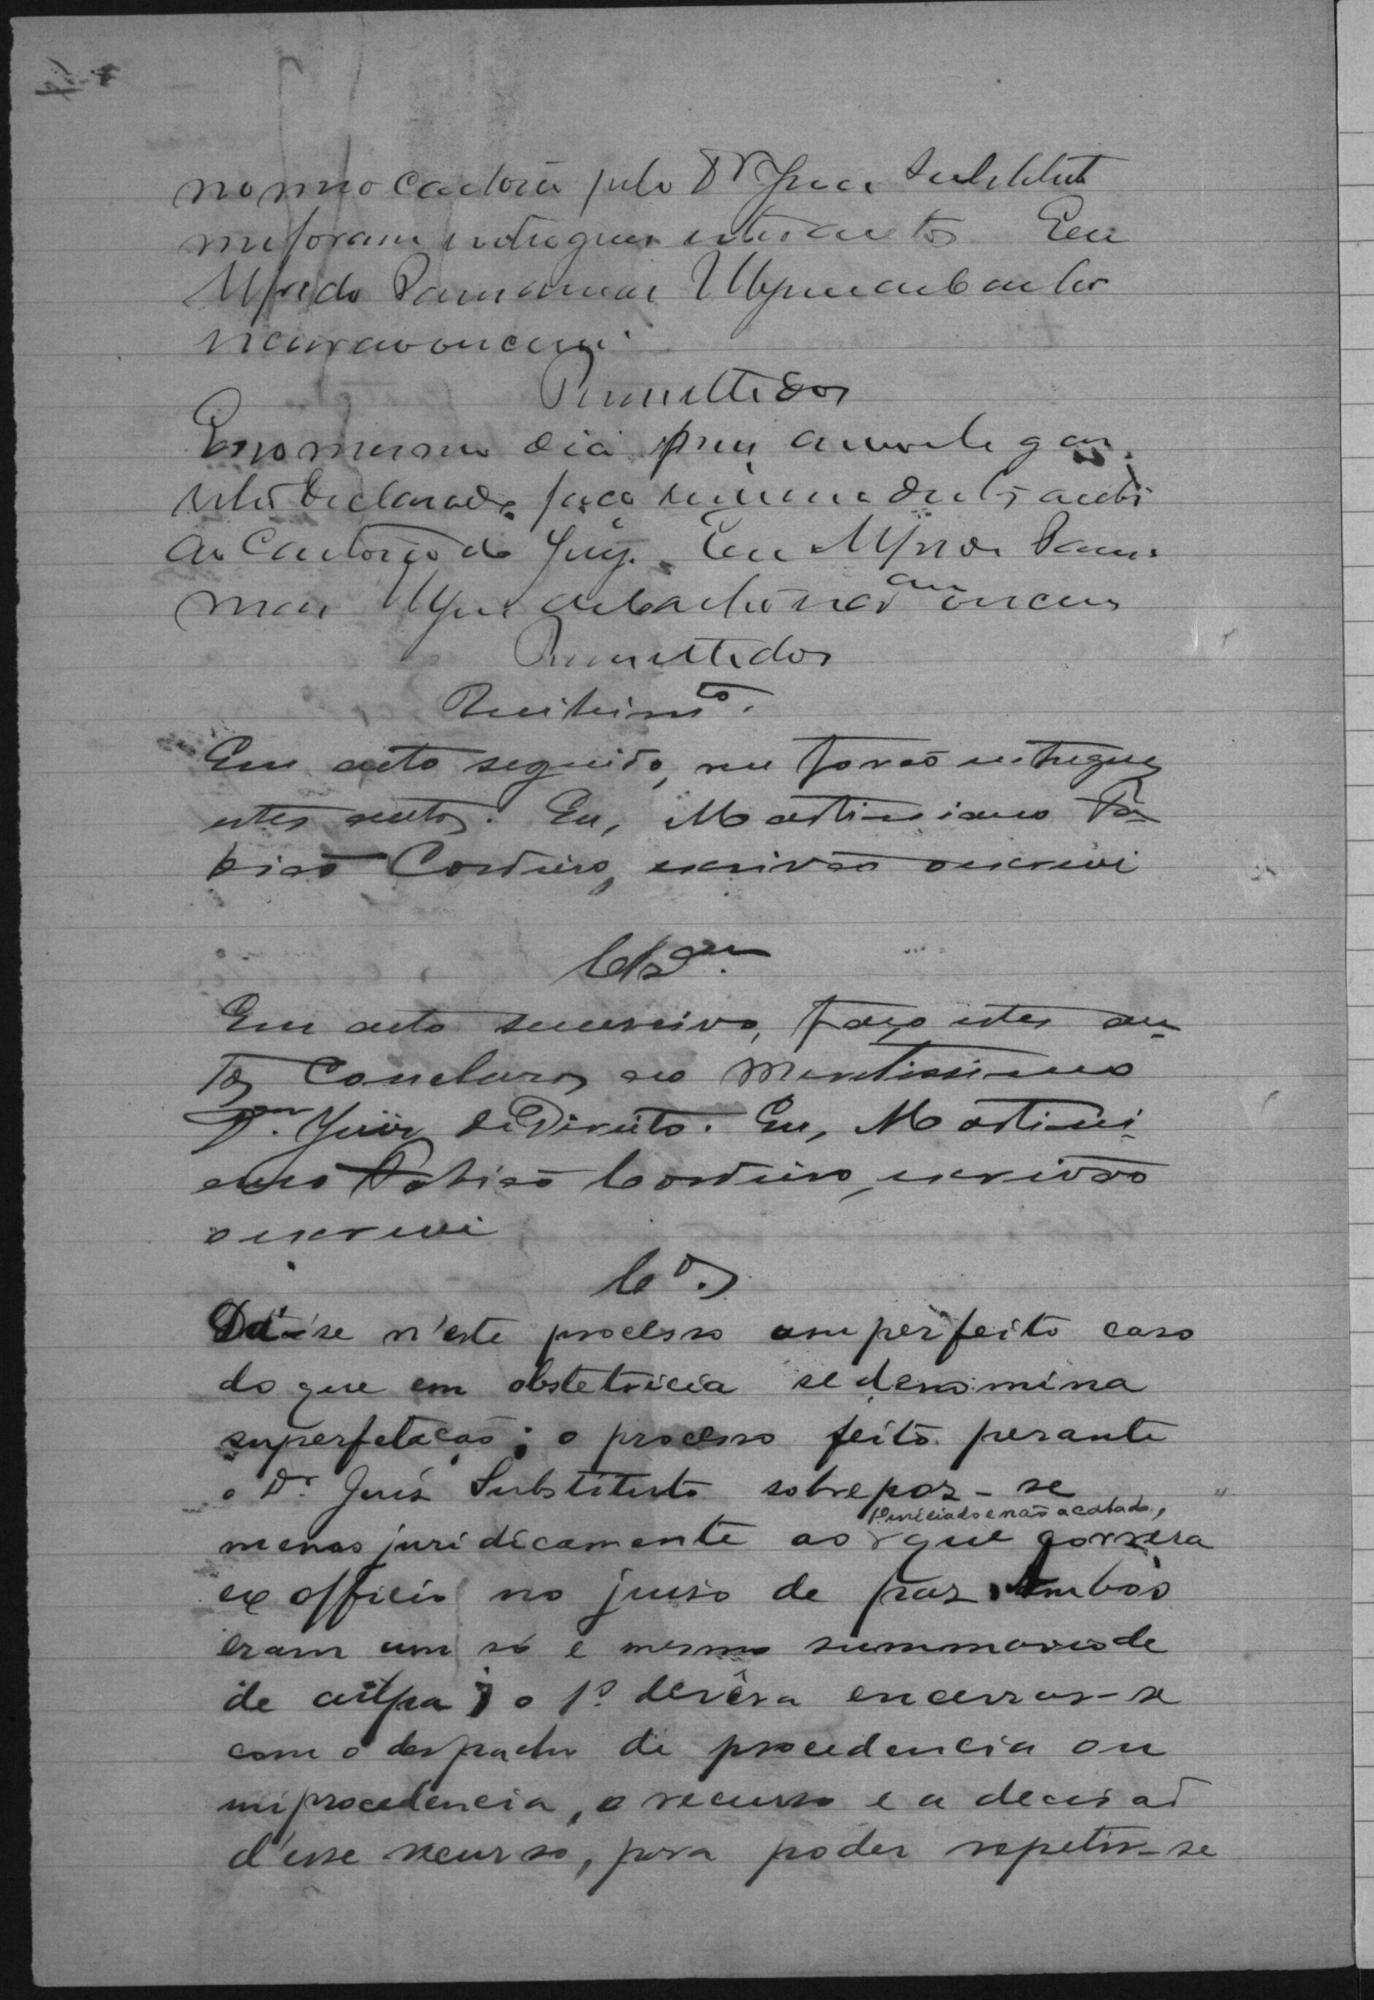 no meo Cartorio pelo Dr Juiz Substituto
me foram entregues estes autos Eu
Alfredo
escrivão o escrevi
Remettidos
E no mesmo dia mez anno e lugar
retro declarado, faço remessa destes autos
ao Cartorio do Jury. Eu Alfredo
escrivão o escrevi
Remettidos
Recebimto.
Em acto seguido, me forão entregues
estes autos. Eu, Martiniano Ta-
bisô Cordeiro, escrivão o escrevi
Clsam.
Em acto successivo, faço estes au-
tos Conclusos ao Meretissimo
Dr. Juiz de Direito. Eu, Martini-
ano Cordeiro, escrivão
o escrevi
Cos.
Dá-se n'este processo um perfeito caso
do que em obstetricia se denomina
superfetacaõ; o processo feito perante
o Dr. Juiz Substituto sobrepoz-se
menos juridicamente ao 1º iniciado e não acabado, que corrêra
ex officio no juiso de paz. Ambos
eram um só e mesmo summario de
de culpa; o 1º devêra encerrar-se
com o despacho de procedencia ou
improcedencia, o recurso e a decisaõ
d'esse recurso, para poder repetir-se